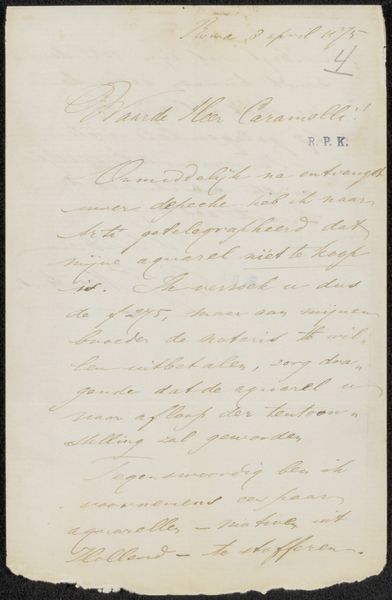 Roma 8 april 1875
4
Waarde Heer Caramelli!
R. P. K.
Onmiddelijk na ontvangst
uwer depeche heb ik naar
Arti getelegrapheerd dat
mijne aquarel niet te koop
is. Ik verzoek u dus
de f 275, maar aan mijnen
broeder de notaris te wil-
len uitbetalen, zorg dra-
gende dat de aquarel u
naar afloop der tentoon-
stelling zal geworden
Tegenswoordig ben ik
voornemens een paar
aquarellen – motieven uit
Holland – te stofferen.